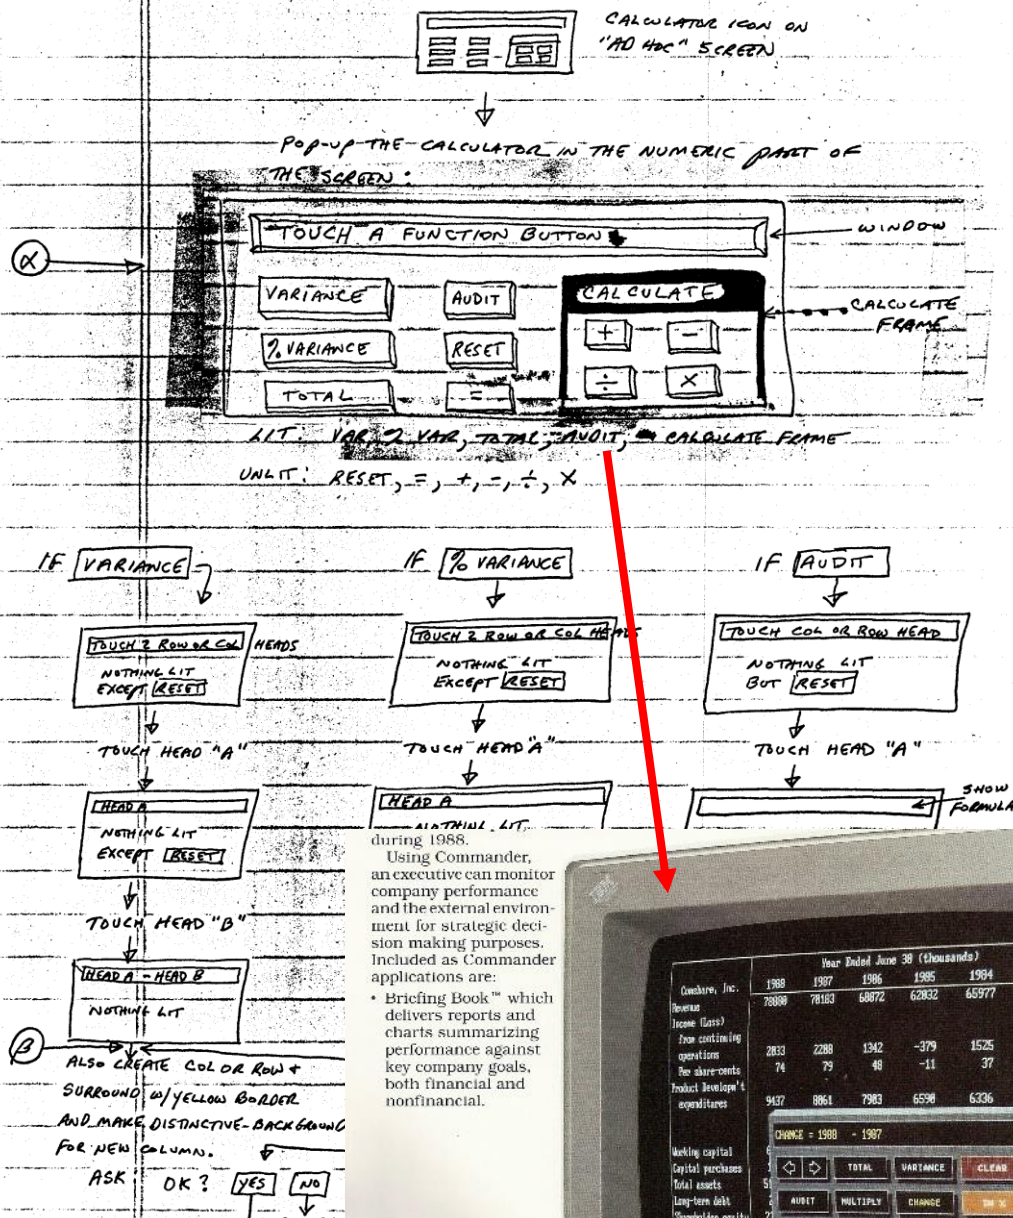 CALCULATOR ICON ON
"AD HOC" SCREEN
POP-UP THE CALCULATOR IN THE NUMERIC PART OF
THE SCREEN:
TOUCH A FUNCTION BUTTON
WINDOW
α
VARIANCE
AUDIT
CALCULATE
CALCULATE
FRAME
+ -
% VARIANCE
RESET
÷ ×
TOTAL
=
LIT: VAR, % VAR, TOTAL, AUDIT, CALCULATE FRAME
UNLIT: RESET, =, +, -, ÷, ×
IF VARIANCE
TOUCH 2 ROW OR COL HEADS
NOTHING LIT
EXCEPT RESET
TOUCH HEAD "A"
HEAD A
NOTHING LIT
EXCEPT RESET
TOUCH HEAD "B"
HEAD A - HEAD B
NOTHING LIT
β
ALSO CREATE COL OR ROW +
SURROUND W/YELLOW BORDER
AND MAKE DISTINCTIVE BACKGROUND
FOR NEW COLUMN.
ASK: OK? YES NO
IF % VARIANCE
TOUCH 2 ROW OR COL HEADS
NOTHING LIT
EXCEPT RESET
TOUCH HEAD "A"
HEAD A
NOTHING LIT
IF AUDIT
TOUCH COL OR ROW HEAD
NOTHING LIT
BUT RESET
TOUCH HEAD "A"
SHOW
FORMULA
during 1988.
Using Commander,
an executive can monitor
company performance
and the external environ-
ment for strategic deci-
sion making purposes.
Included as Commander
applications are:
• Briefing Book™ which
delivers reports and
charts summarizing
performance against
key company goals,
both financial and
nonfinancial.
IBM
Year Ended June 30 (thousands)
Comshare, Inc. 1988 1987 1986 1985 1984
Revenue 78880 70183 68872 62032 65977
Income (Loss)
from continuing
operations 2833 2288 1342 -379 1525
Per share-cents 74 79 48 -11 37
Product Developm't
expenditures 9437 8861 7983 6590 6336
CHANGE = 1988 - 1987
Working capital
Capital purchases
Total assets
Long-term debt
Shareholders equity
TOTAL VARIANCE CLEAR
AUDIT MULTIPLY CHANGE